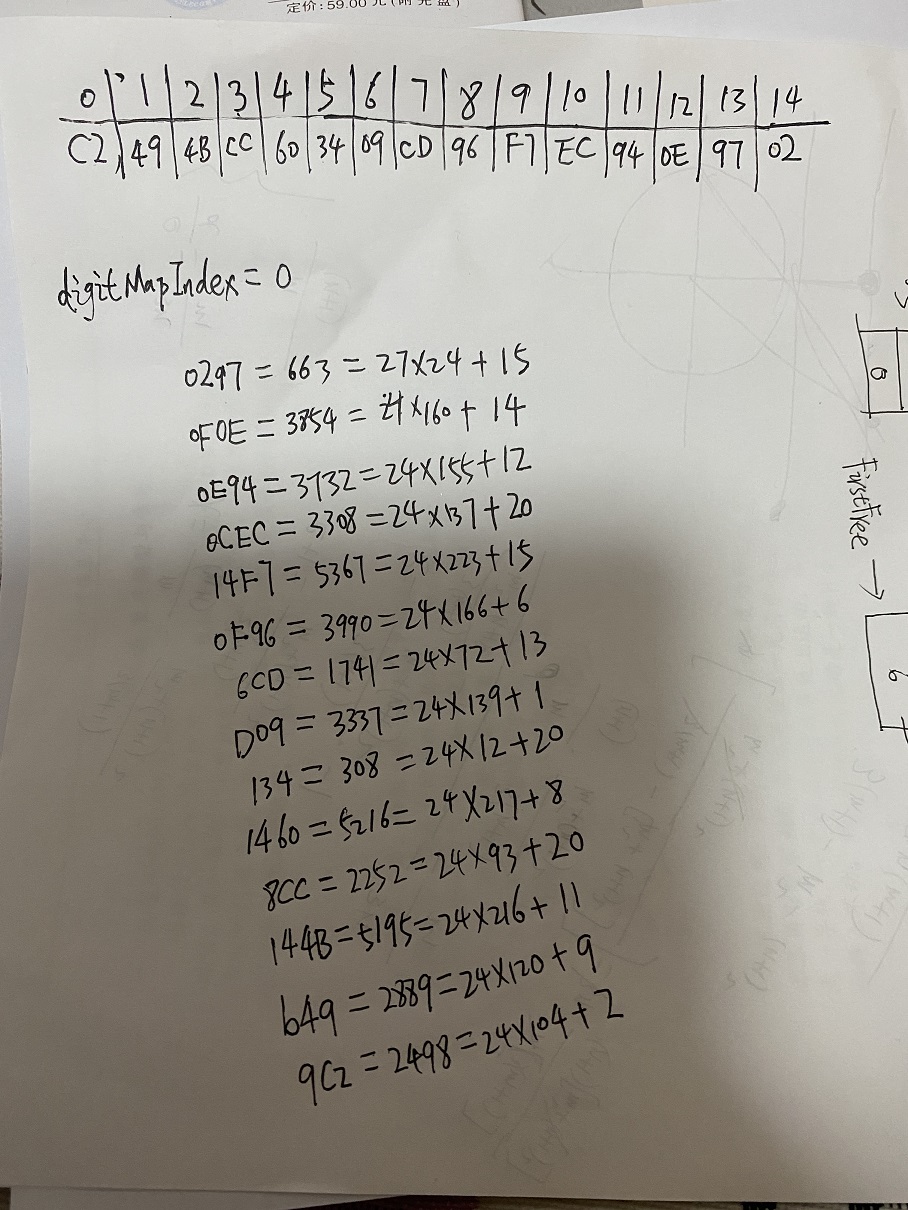 定价:59.00元(附光盘)
0 1 2 3 4 5 6 7 8 9 10 11 12 13 14
C2 49 4B CC 60 34 09 CD 96 F7 EC 94 0E 97 02
digitMapIndex = 0
0297 = 663 = 27×24 + 15
0F0E = 3854 = 24×160 + 14
0E94 = 3732 = 24×155 + 12
0CEC = 3308 = 24×137 + 20
14F7 = 5367 = 24×223 + 15
0F96 = 3990 = 24×166 + 6
6CD = 1741 = 24×72 + 13
D09 = 3337 = 24×139 + 1
134 = 308 = 24×12 + 20
1460 = 5216 = 24×217 + 8
8CC = 2252 = 24×93 + 20
144B = 5195 = 24×216 + 11
b49 = 2889 = 24×120 + 9
9C2 = 2498 = 24×104 + 2
0
FirstFree →
6